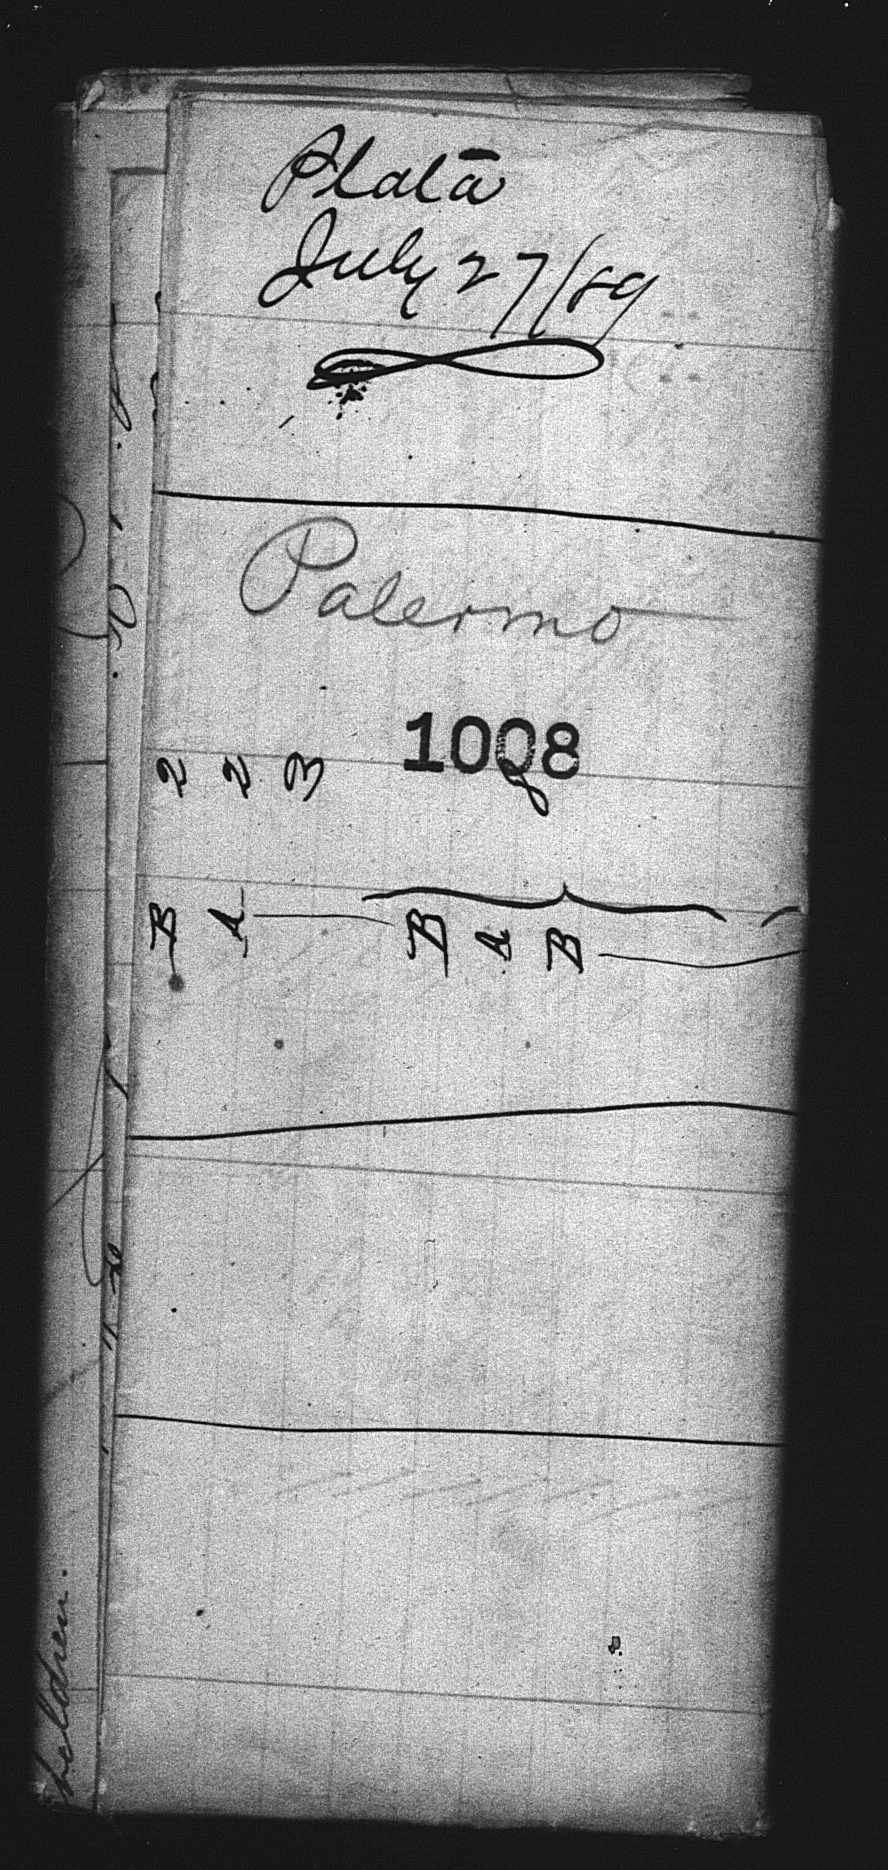 Plata
July 27/89
Palermo
1008
2 2 3 8
B A B A B
children.